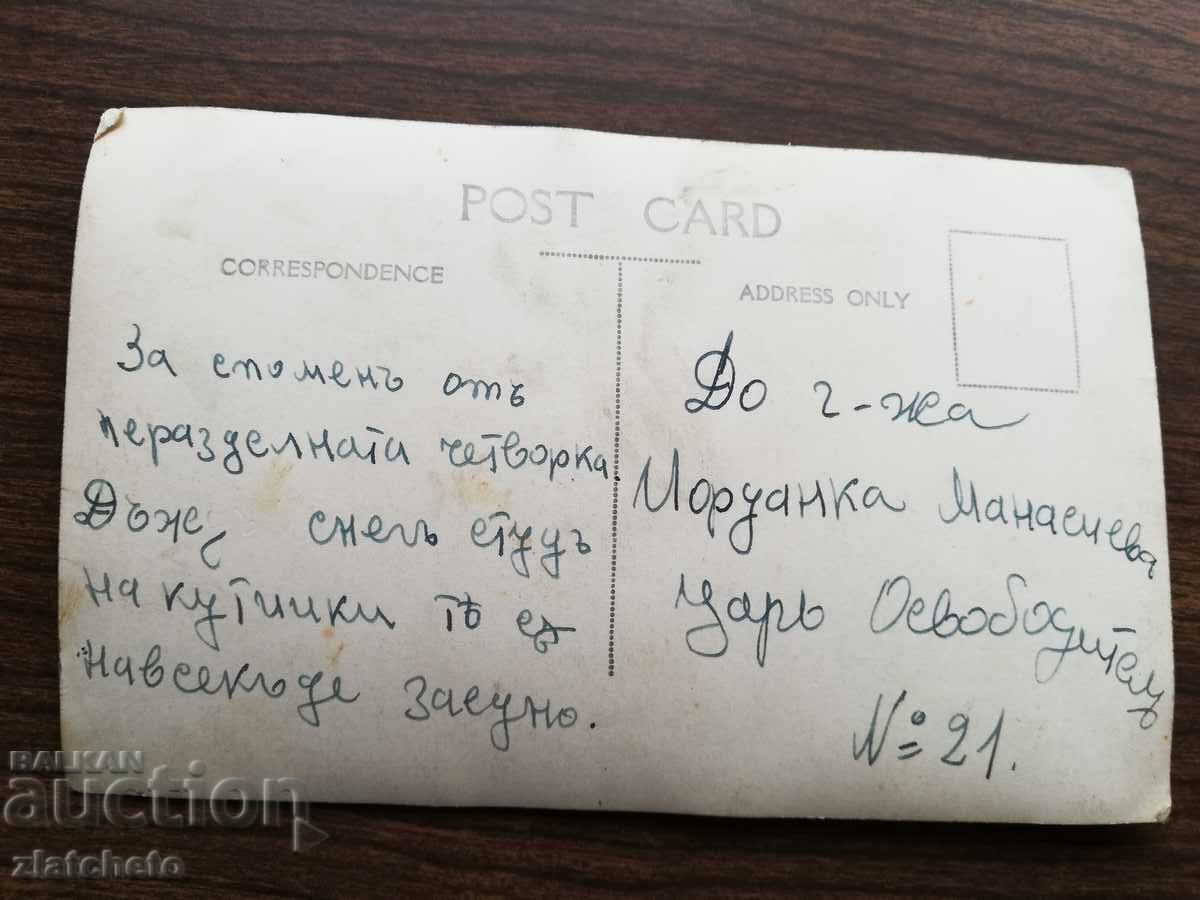 POST CARD
CORRESPONDENCE
За споменъ отъ
неразделната четворка
Дъжд снегъ студъ
на кутийки тѣ са
навсекъде заедно.
ADDRESS ONLY
До г-жа
Йорданка Манасиева
Царь Освободителъ
№ 21.
BALKAN
auction
zlatcheto